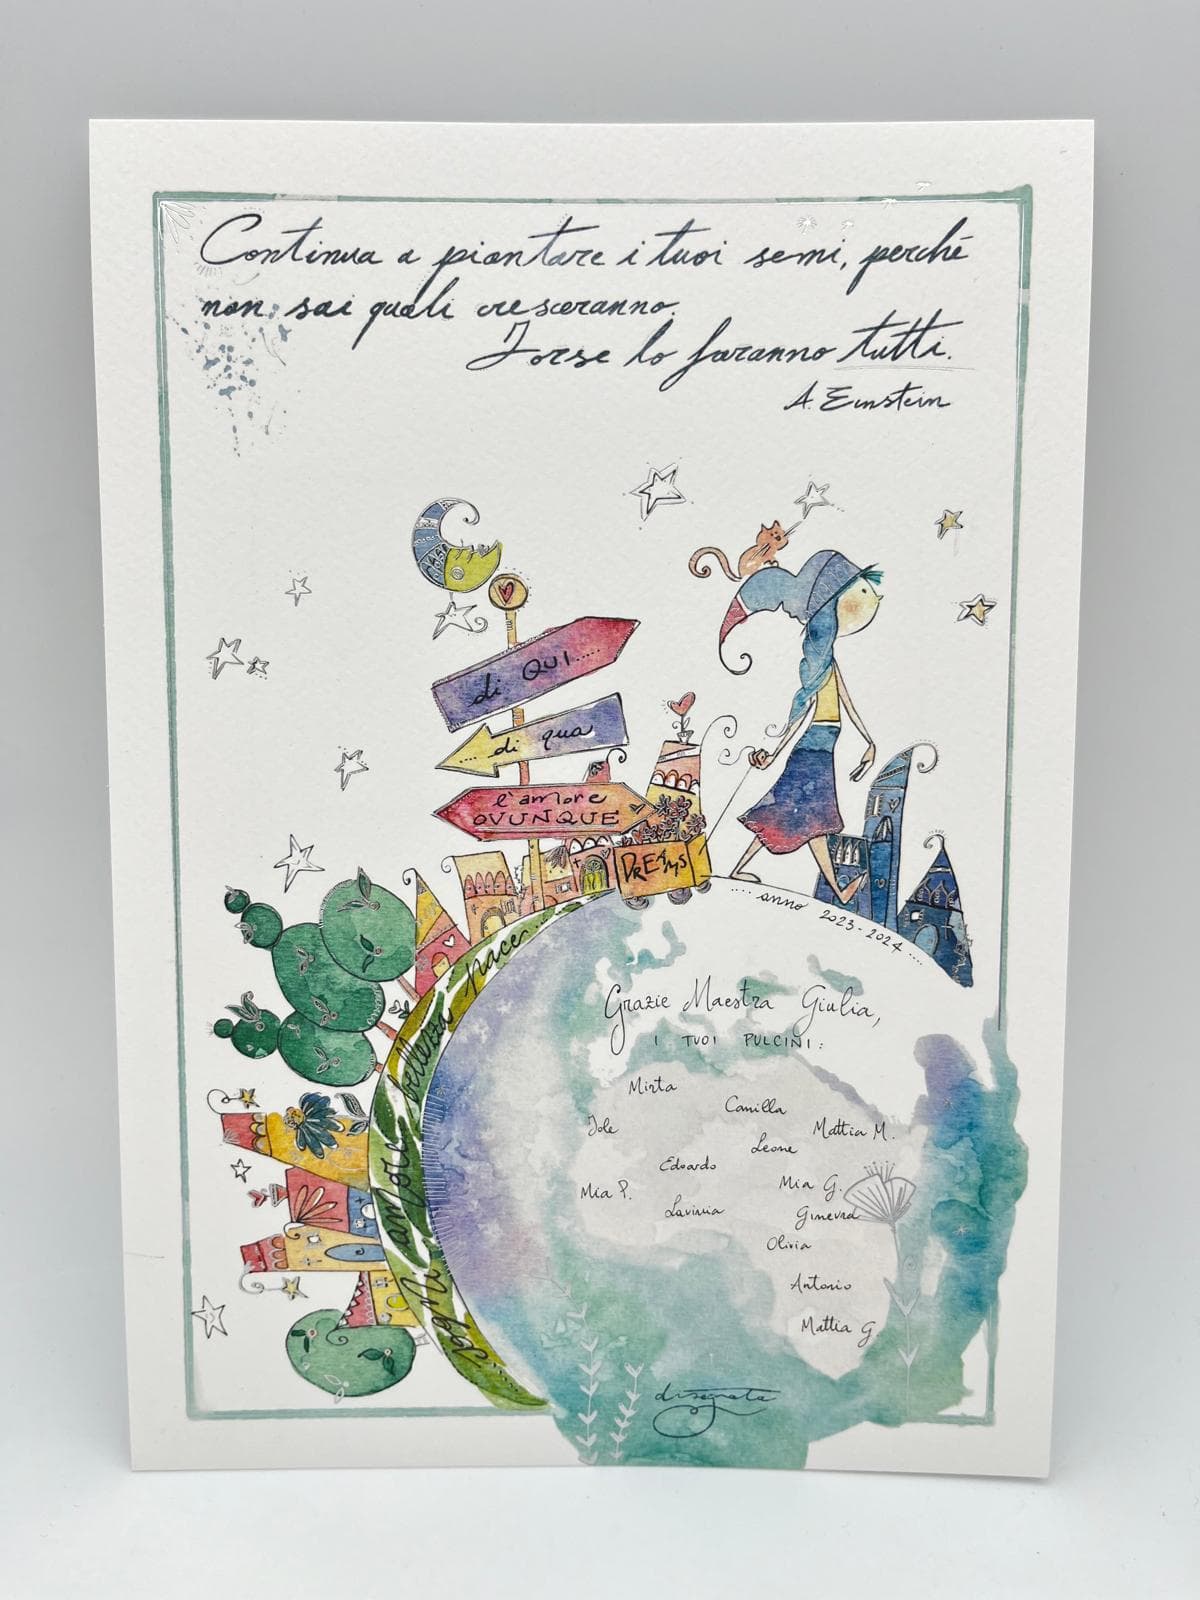 Continua a piantare i tuoi semi, perché
non sai quali cresceranno.
Forse lo faranno tutti.
A. Einstein
di QUI.....
...di qua
l'amore
OVUNQUE
DREAMS
..... anno 2023-2024 ....
sogni, amore bellezza pace...
Grazie Maestra Giulia,
I TUOI PULCINI:
Mirta
Camilla
Jole
Mattia M.
Leone
Edoardo
Mia G.
Mia P.
Lavinia
Ginevra
Olivia
Antonio
Mattia G
disegnata